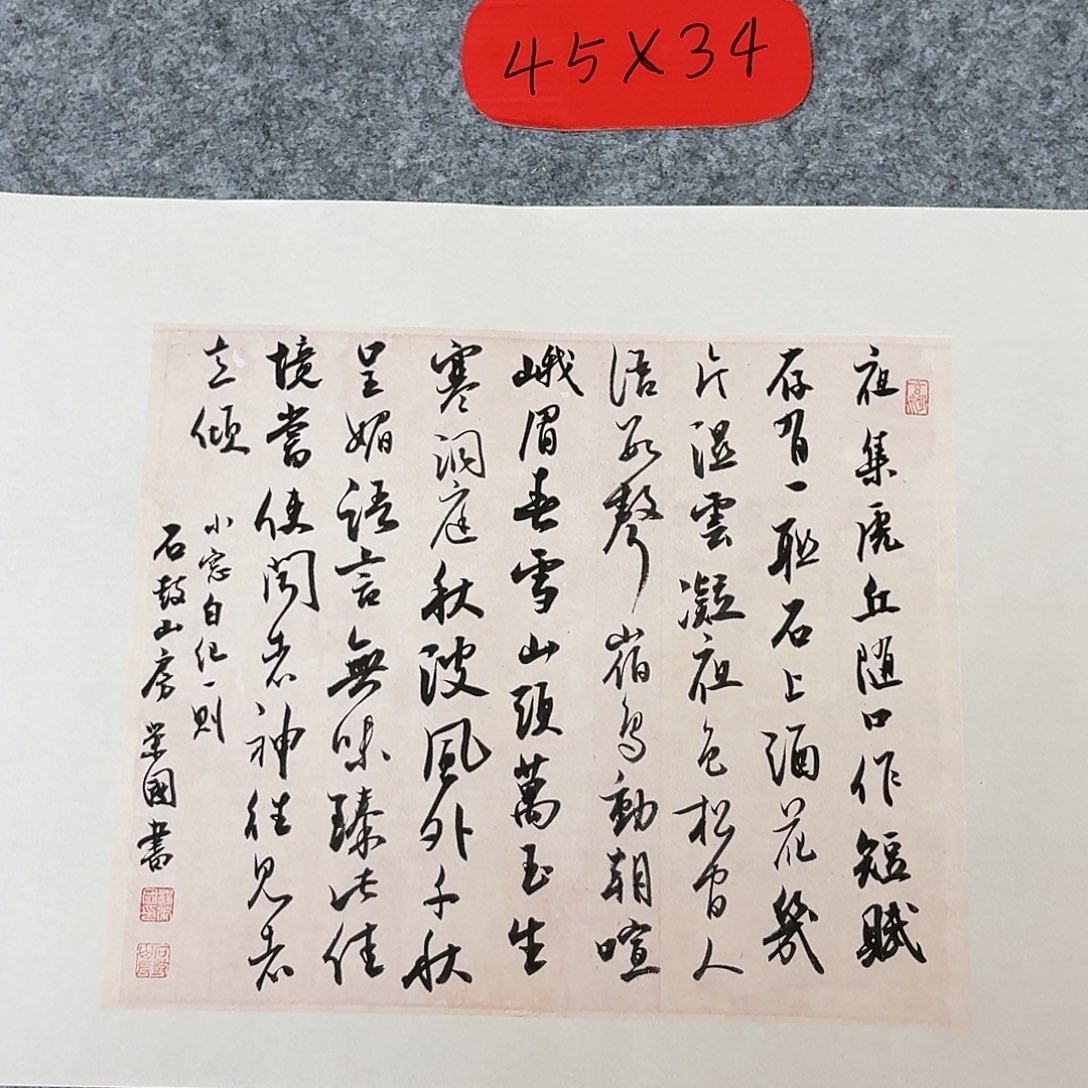 45X34
夜集虎丘随口作短賦
存有一聯石上酒花幾
片濕雲凝夜色松間人
語數聲宿鳥動朝喧
峨眉春雪山頭萬玉生
寒洞庭秋波風外千秋
呈媚語言無味臻此佳
境當使聞者神往見者
立傾
小窓自紀一則
石鼓山房榮國書